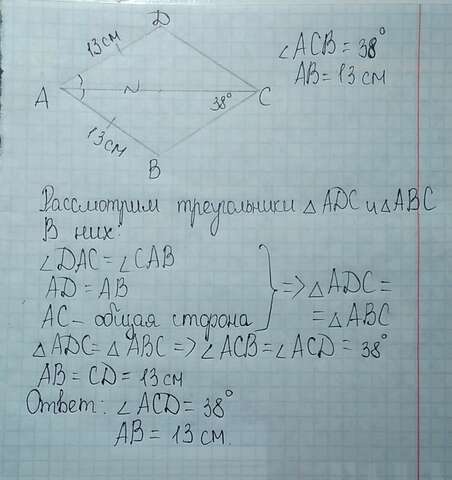 D
13см
∠ACB = 38°
AB = 13 см
A
38°
C
13см
B
Рассмотрим треугольники △ADC и △ABC
В них:
∠DAC = ∠CAB
AD = AB
AC – общая сторона
=> △ADC =
= △ABC
△ADC = △ABC => ∠ACB = ∠ACD = 38°
AB = CD = 13 см
Ответ: ∠ACD = 38°
AB = 13 см.